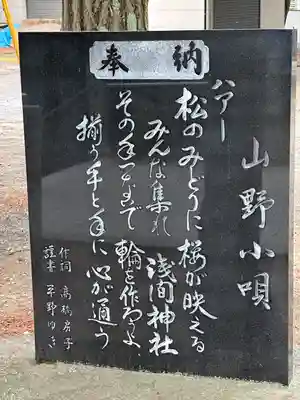 奉納
山野小唄
ハアー
松のみどりに桜が映える
みんな集れ 浅間神社
その手つないで 輪を作ろうよ
揃う手と手に心が通う
作詞 高橋房子
謹書 平野ゆき